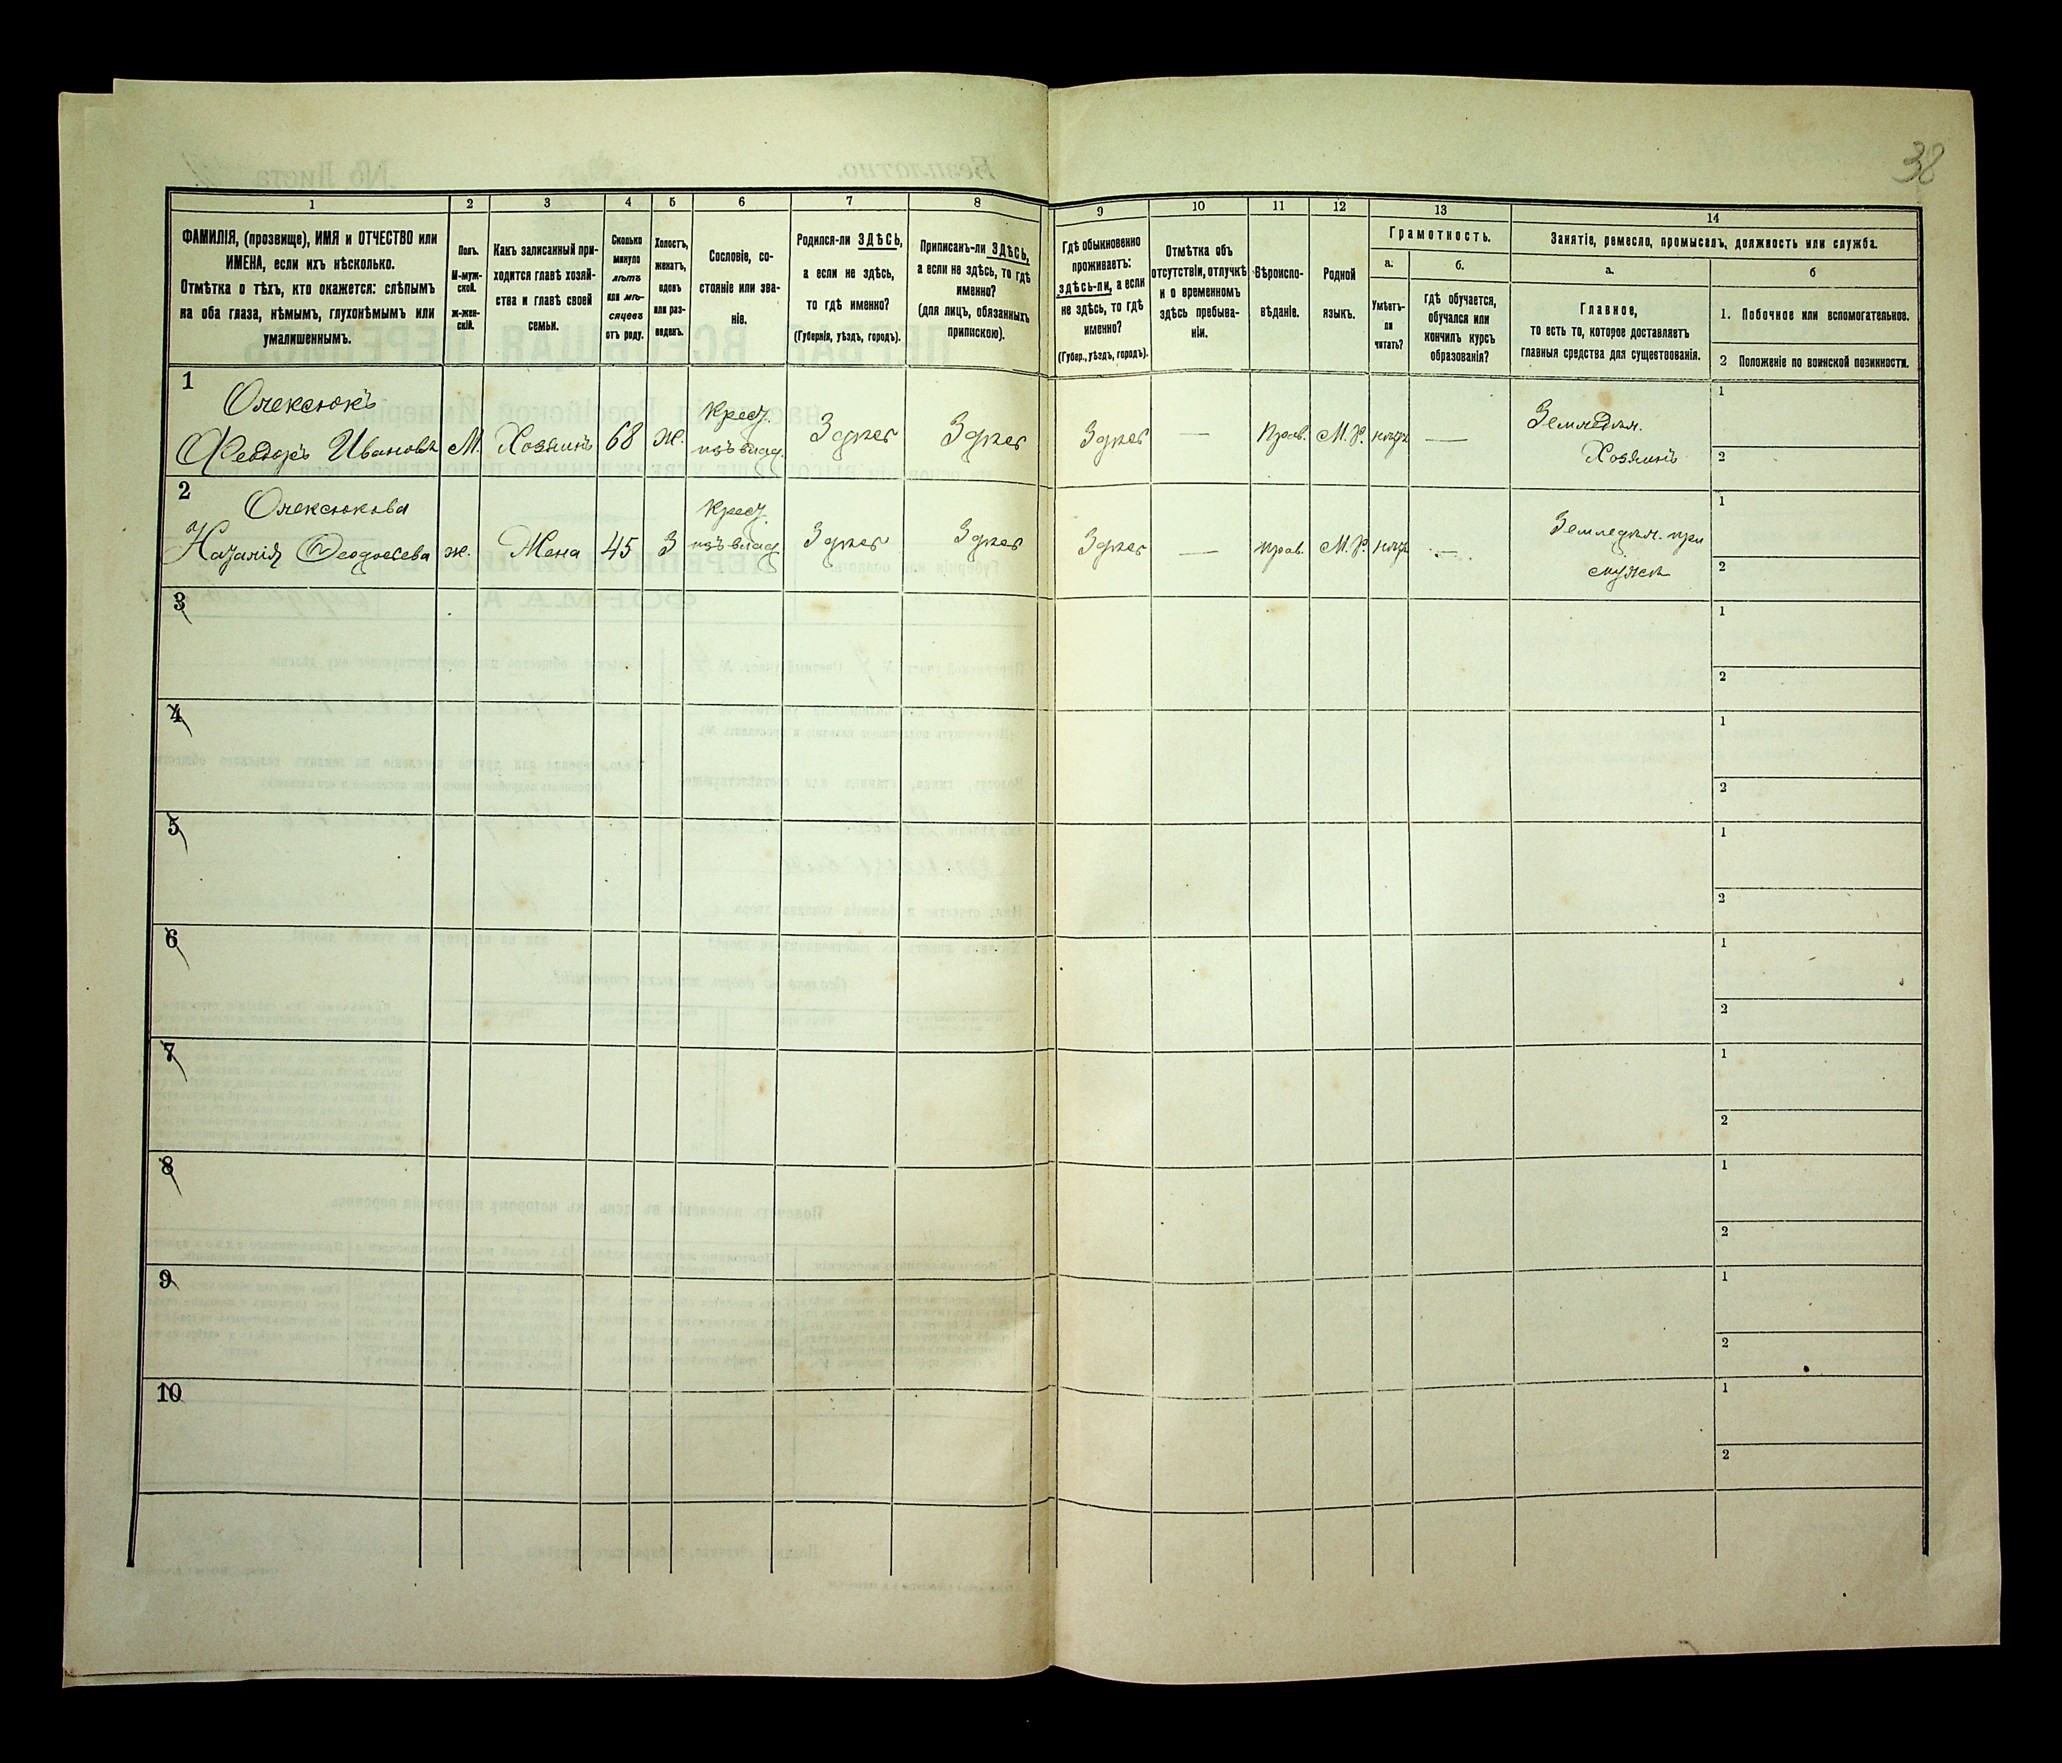 38
1
2
3
4
5
6
7
8
9
10
11
12
13
14
ФАМИЛІЯ, (прозвище), ИМЯ и ОТЧЕСТВО или
ИМЕНА, если ихъ нѣсколько.
Отмѣтка о тѣхъ, кто окажется: слѣпымъ
на оба глаза, нѣмымъ, глухонѣмымъ или
умалишеннымъ.
Полъ.
М-муж-
ской.
ж-жен-
скій.
Какъ записанный при-
ходится главѣ хозяй-
ства и главѣ своей
семьи.
Сколько
минуло
лѣтъ
или мѣ-
сяцевъ
отъ роду.
Холостъ,
женатъ,
вдовъ
или раз-
веденъ.
Сословіе, со-
стояніе или зва-
ніе.
Родился-ли ЗДѢСЬ,
а если не здѣсь,
то гдѣ именно?
(Губернія, уѣздъ, городъ).
Приписанъ-ли ЗДѢСЬ,
а если не здѣсь, то гдѣ
именно?
(для лицъ, обязанныхъ
припискою).
Гдѣ обыкновенно
проживаетъ:
здѣсь-ли, а если
не здѣсь, то гдѣ
именно?
(Губер., уѣздъ, городъ).
Отмѣтка объ
отсутствіи, отлучкѣ
и о временномъ
здѣсь пребыва-
ніи.
Вѣроиспо-
вѣданіе.
Родной
языкъ.
Грамотность.
а.
б.
Умѣетъ-
ли
читать?
Гдѣ обучается,
обучался или
кончилъ курсъ
образованія?
Занятіе, ремесло, промыселъ, должность или служба.
а.
б
Главное,
то есть то, которое доставляетъ
главныя средства для существованія.
1. Побочное или вспомогательное.
2 Положеніе по воинской повинности.
1
Олексюкъ
Феодоръ Ивановъ
М.
Хозяинъ
68
ж.
Крест.
изъ влад.
Здѣсь
Здѣсь
Здѣсь
—
Прав.
М. Р.
нѣтъ
—
Земледѣл.
Хозяинъ
1
2
2
Олексюкова
Наталія Феодосіева
ж.
Жена
45
З
Крест.
изъ влад.
Здѣсь
Здѣсь
Здѣсь
—
Прав.
М. Р.
нѣтъ
—
Земледѣл. при
мужѣ
1
2
3
1
2
4
1
2
5
1
2
6
1
2
7
1
2
8
1
2
9
1
2
10
1
2